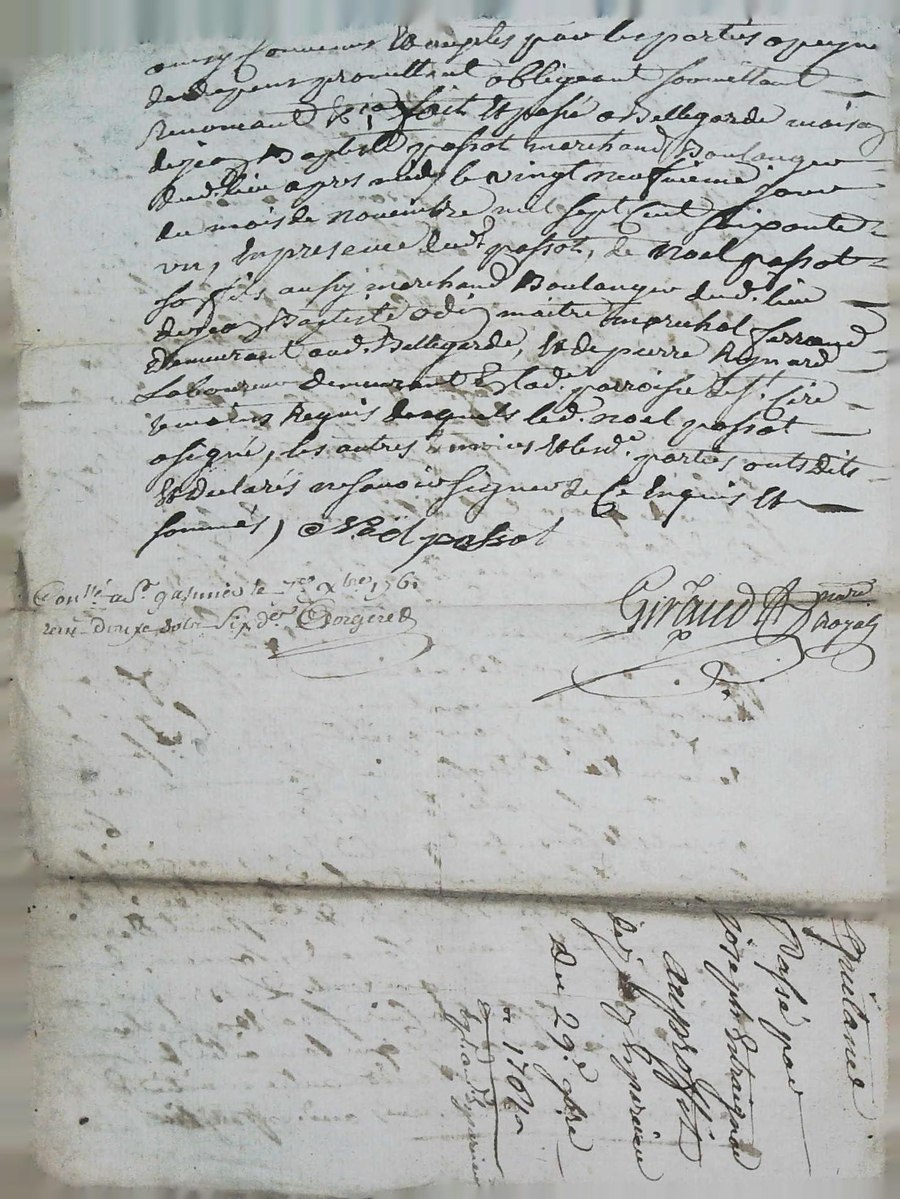 ainsy convenus et acceptés par les parties a peyne
de depens promettant obligeant soumettant
Renonceant &ia, fait et passé a Bellegarde maison
de jean Baptiste passot marchand Boulanger
dud. lieu apres midy le vingt neufvieme jour
du mois de novembre mil sept cent soixante
un, En presence dud.t passot, de noel passot
so fils aussy marchand Boulanger dud. lieu
de jean Baptiste odin maitre marechal ferrand
demeurant aud Bellegarde, et de pierre Reynard
Laboureur demeurant En lad. parroisse de St. Cire
temoins Requis desquels led. noel passot
a signé, les autres temoins et lesd. parties ont dits
et declarés ne savoir signer de Ce Enquis et
sommés) Noël passot
Conllé a St. galmier le 7e xbre 1761
Giraud nore royal
quitance
Passé par
joseph
au proffit
de jean
Du 29e 9bre
1761